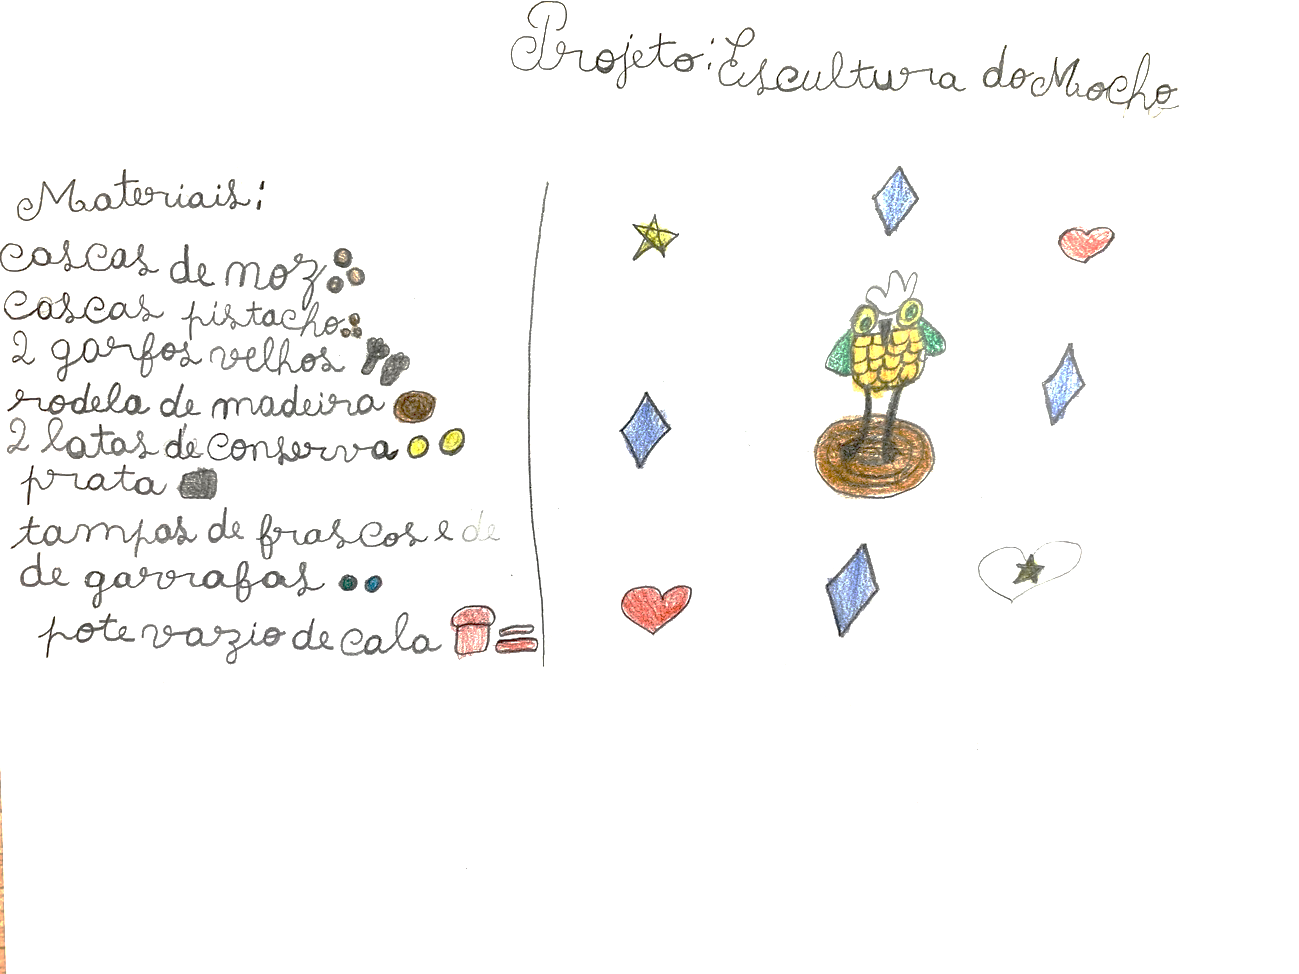 Projeto: Escultura do Mocho
Materiais:
cascas de noz
cascas pistacho
2 garfos velhos
rodela de madeira
2 latas de conserva
prata
tampas de frascos e de
de garrafas
pote vazio de cala